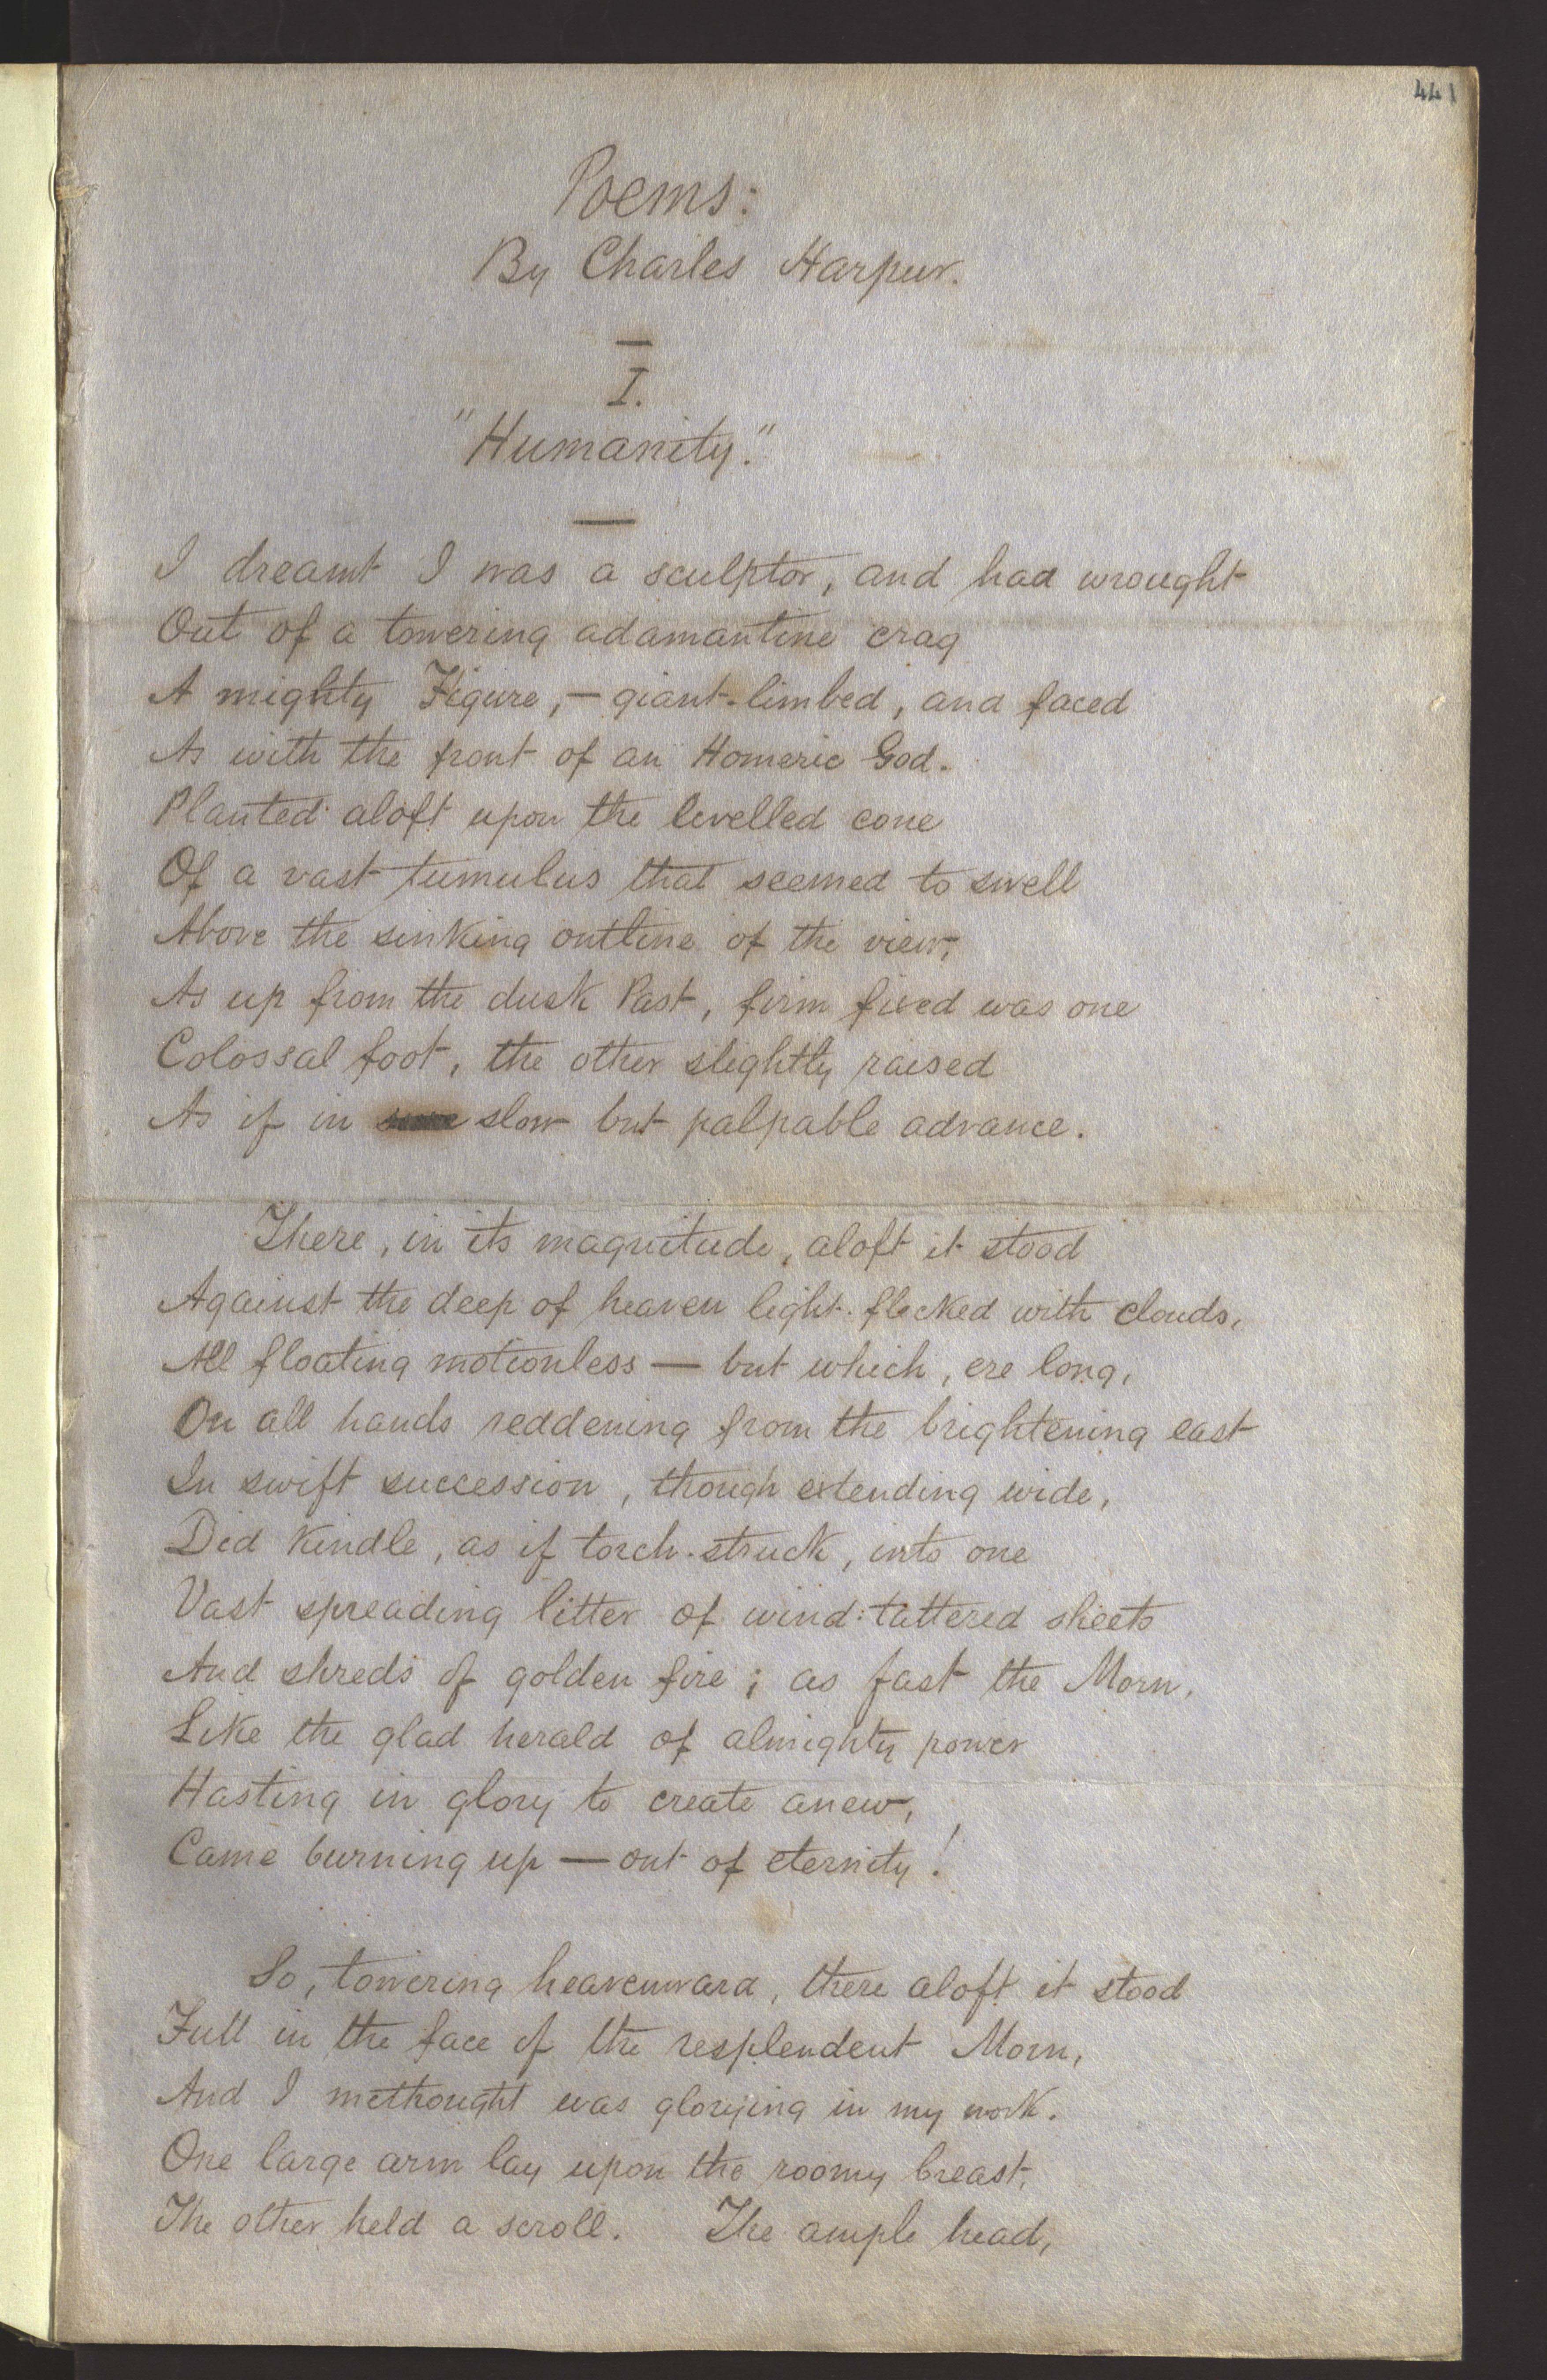 441
Poems:
By Charles Harpur.
I.
"Humanity."
I dreamt I was a sculptor, and had wrought
Out of a towering adamantine crag
A mighty Figure, — giant-limbed, and faced
As with the front of an Homeric God.
Planted aloft upon the levelled cone
Of a vast tumulus that seemed to swell
Above the sinking outline of the view,
As up from the dusk Past, firm fixed was one
Colossal foot, the other slightly raised
As if in slow but palpable advance.
There, in its magnitude, aloft it stood
Against the deep of heaven light-flecked with clouds,
All floating motionless — but which, ere long,
On all hands reddening from the brightening east
In swift succession, though extending wide,
Did kindle, as if torch-struck, into one
Vast spreading litter of wind-tattered sheets
And shreds of golden fire; as fast the Morn,
Like the glad herald of almighty power
Hasting in glory to create anew,
Came burning up — out of eternity!
So, towering heavenward, there aloft it stood
Full in the face of the resplendent Morn,
And I methought was glorying in my work.
One large arm lay upon the roomy breast,
The other held a scroll. The ample head,